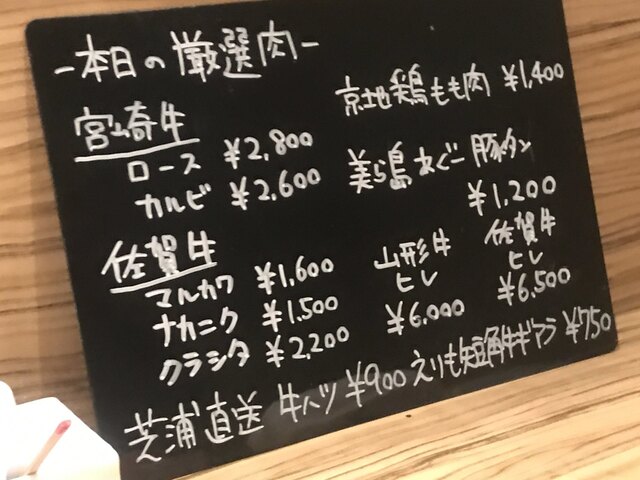 －本日の厳選肉－
宮崎牛
ロース ¥2,800
カルビ ¥2,600
佐賀牛
マルカワ ¥1,600
ナカニク ¥1,500
クラシタ ¥2,200
京地鶏もも肉 ¥1,400
美ら島あぐー豚タン
¥1,200
山形牛
ヒレ
¥6,000
佐賀牛
ヒレ
¥6,500
芝浦直送 牛ハツ ¥900 えりも短角牛ギアラ ¥750